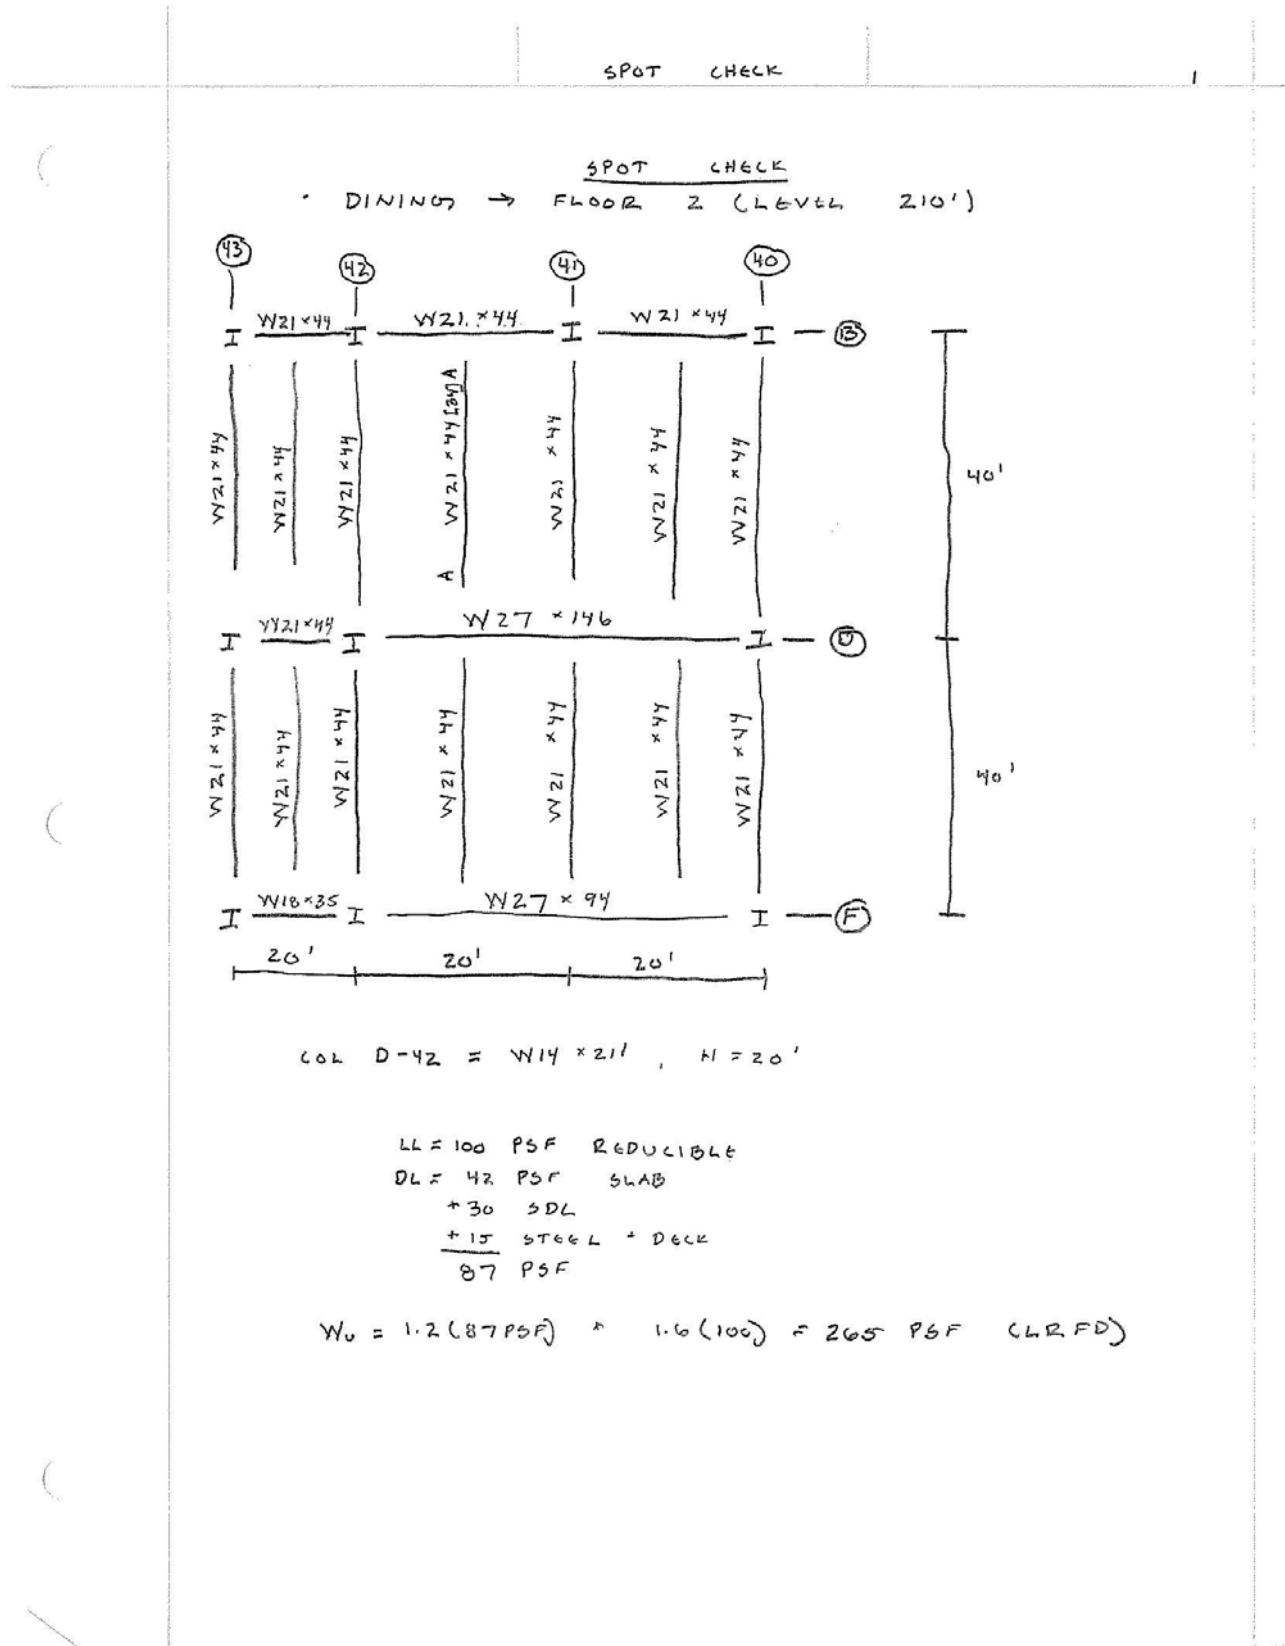 SPOT CHECK
1
SPOT CHECK
· DINING → FLOOR 2 (LEVEL 210')
43 42 41 40
W21×44 W21×44 W21×44 B
W21×44 W21×44 W21×44 W21×44 [34] W21×44 W21×44 W21×44
A A
40'
W21×44 W27×146 D
W21×44 W21×44 W21×44 W21×44 W21×44 W21×44 W21×44
40'
W18×35 W27×94 F
20' 20' 20'
COL D-42 = W14×211, H=20'
LL = 100 PSF REDUCIBLE
DL = 42 PSF SLAB
+30 SDL
+15 STEEL + DECK
87 PSF
Wu = 1.2(87PSF) + 1.6(100) = 265 PSF (LRFD)